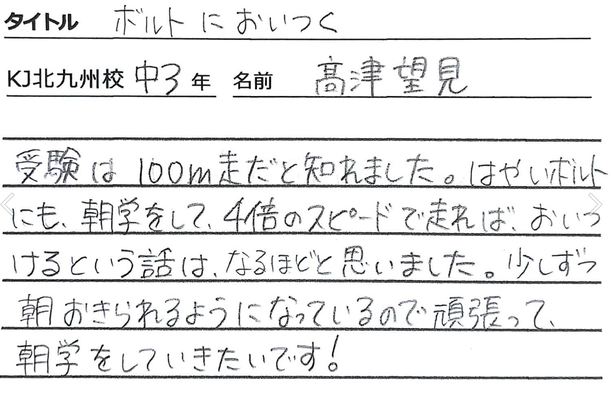 タイトル ボルトにおいつく
KJ北九州校 中3年 名前 髙津望見
受験は100m走だと知れました。はやいボルト
にも、朝学をして、4倍のスピードで走れば、おいつ
けるという話は、なるほどと思いました。少しずつ
朝おきられるようになっているので頑張って、
朝学をしていきたいです!